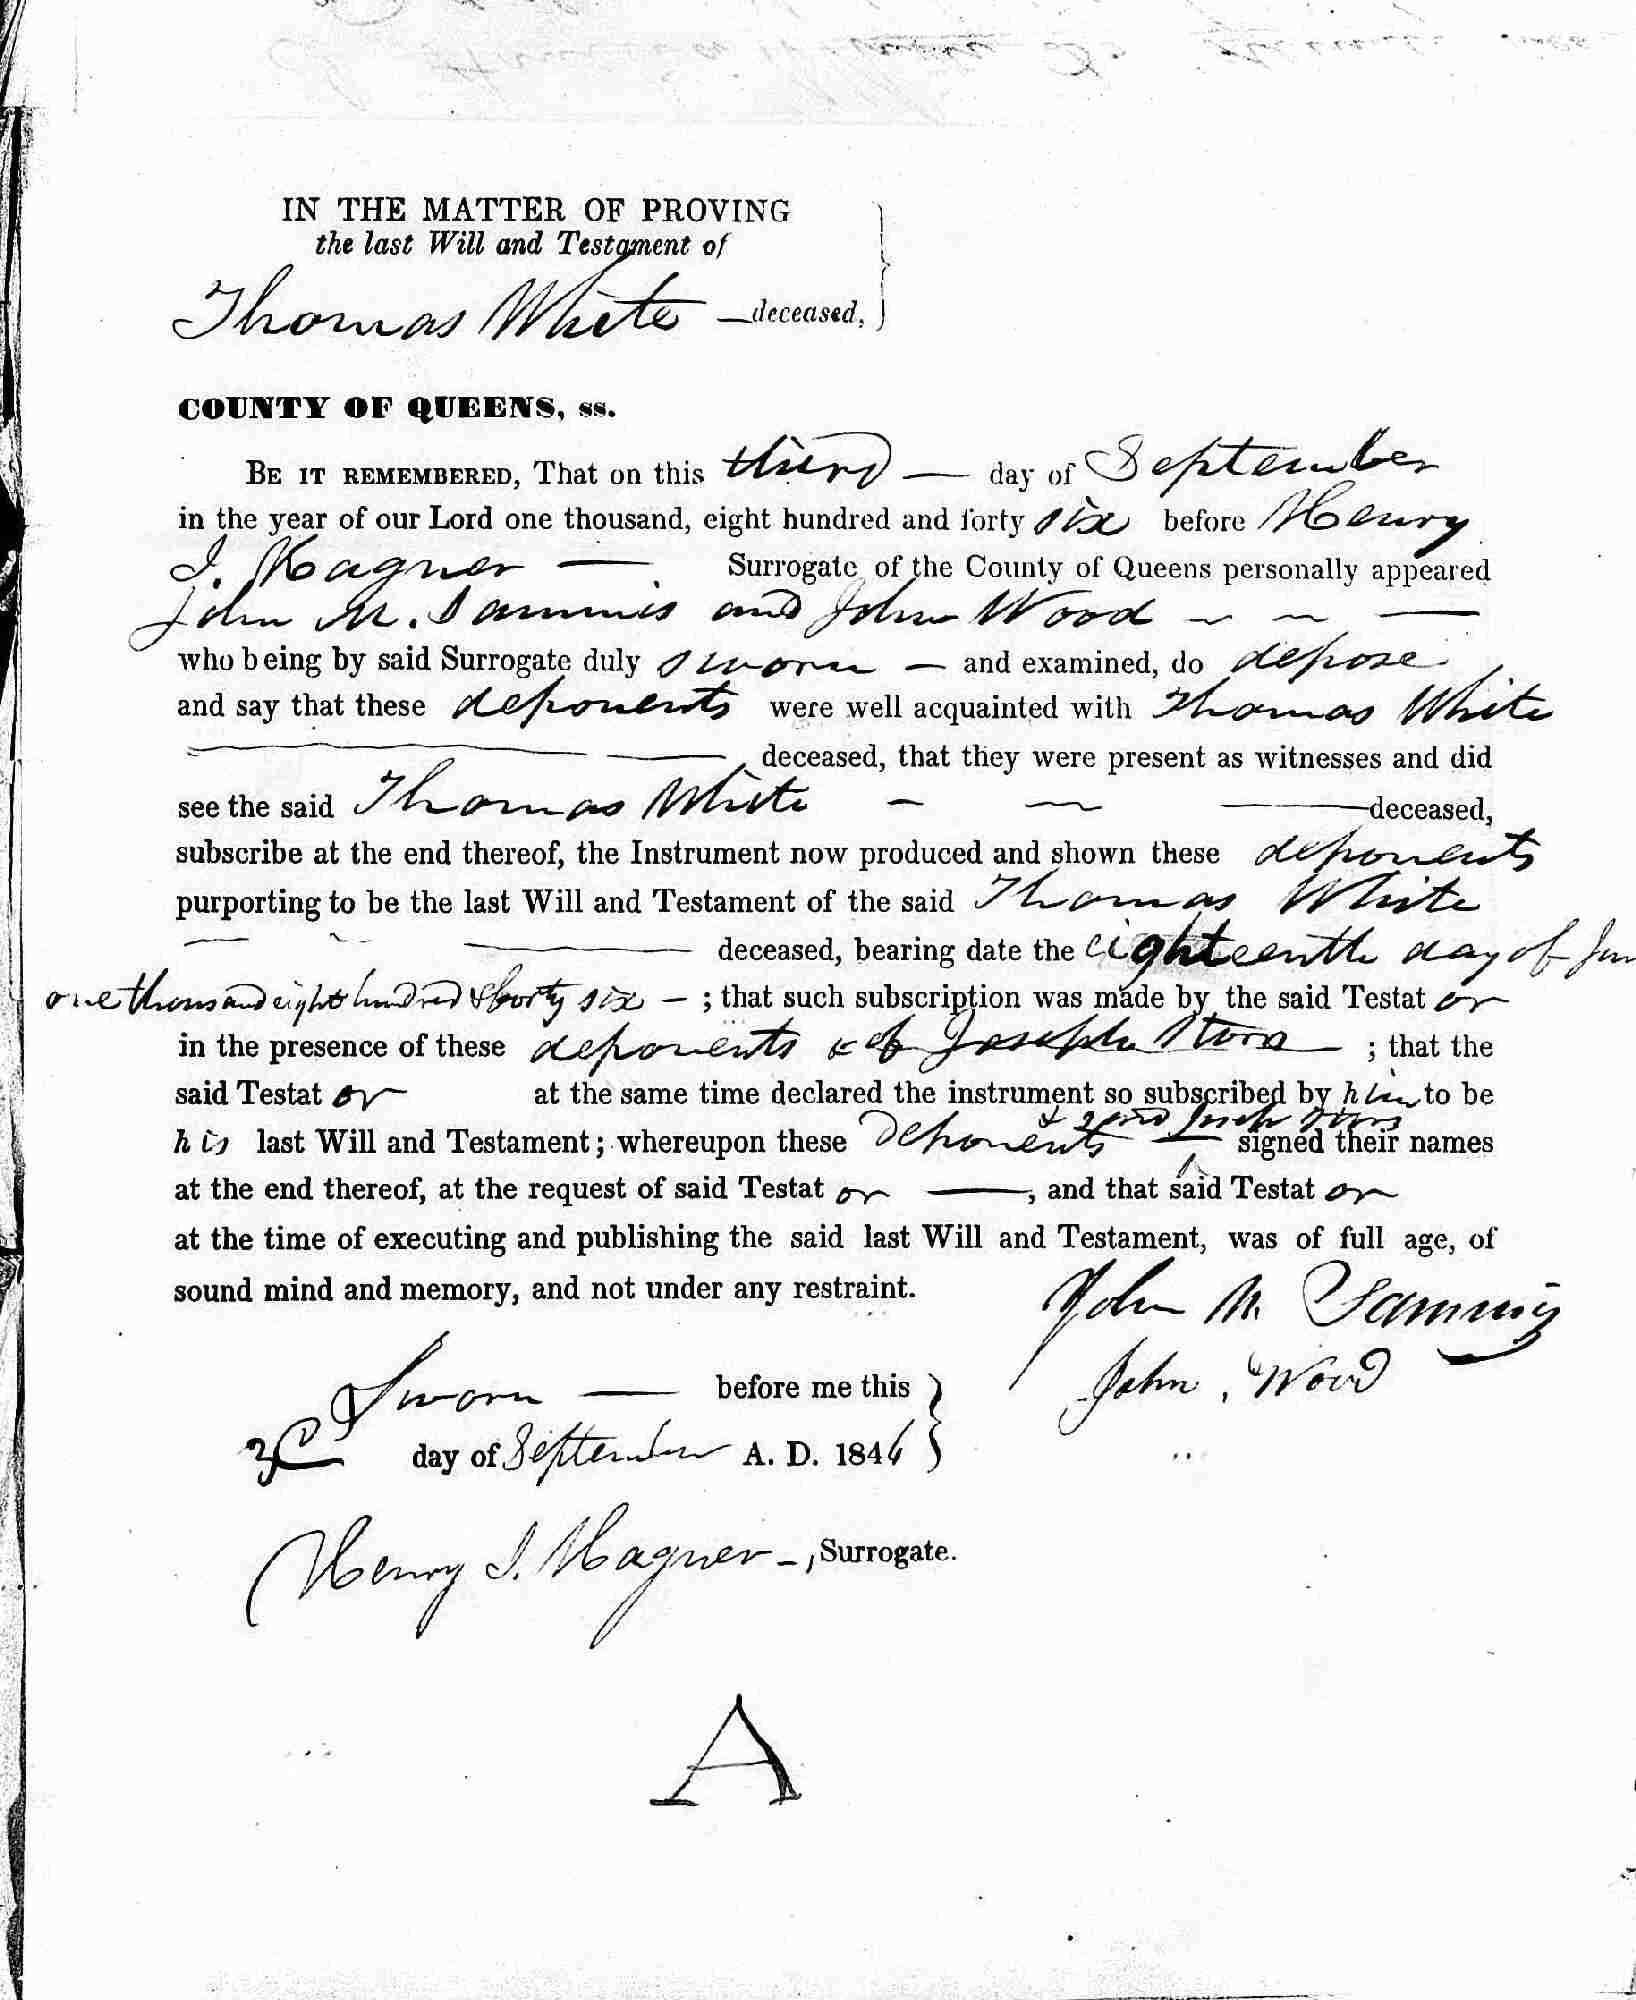 IN THE MATTER OF PROVING
the last Will and Testament of
Thomas White — deceased,
COUNTY OF QUEENS, ss.
BE IT REMEMBERED, That on this third — day of September
in the year of our Lord one thousand, eight hundred and forty six before Henry
I. Hagner — Surrogate of the County of Queens personally appeared
John M. Sammis and John Wood — — —
who being by said Surrogate duly sworn — and examined, do depose
and say that these deponents were well acquainted with Thomas White
— — deceased, that they were present as witnesses and did
see the said Thomas White — — — deceased,
subscribe at the end thereof, the Instrument now produced and shown these deponents
purporting to be the last Will and Testament of the said Thomas White
— — — deceased, bearing date the eighteenth day of
one thousand eight hundred & forty six — ; that such subscription was made by the said Testat or
in the presence of these deponents & of Joseph ; that the
said Testat or at the same time declared the instrument so subscribed by him to be
his last Will and Testament; whereupon these Deponents & said — signed their names
at the end thereof, at the request of said Testat or —, and that said Testat or
at the time of executing and publishing the said last Will and Testament, was of full age, of
sound mind and memory, and not under any restraint.
John M. Sammis
John Wood
Sworn — before me this
3d day of September A. D. 1846
Henry I. Hagner —, Surrogate.
A